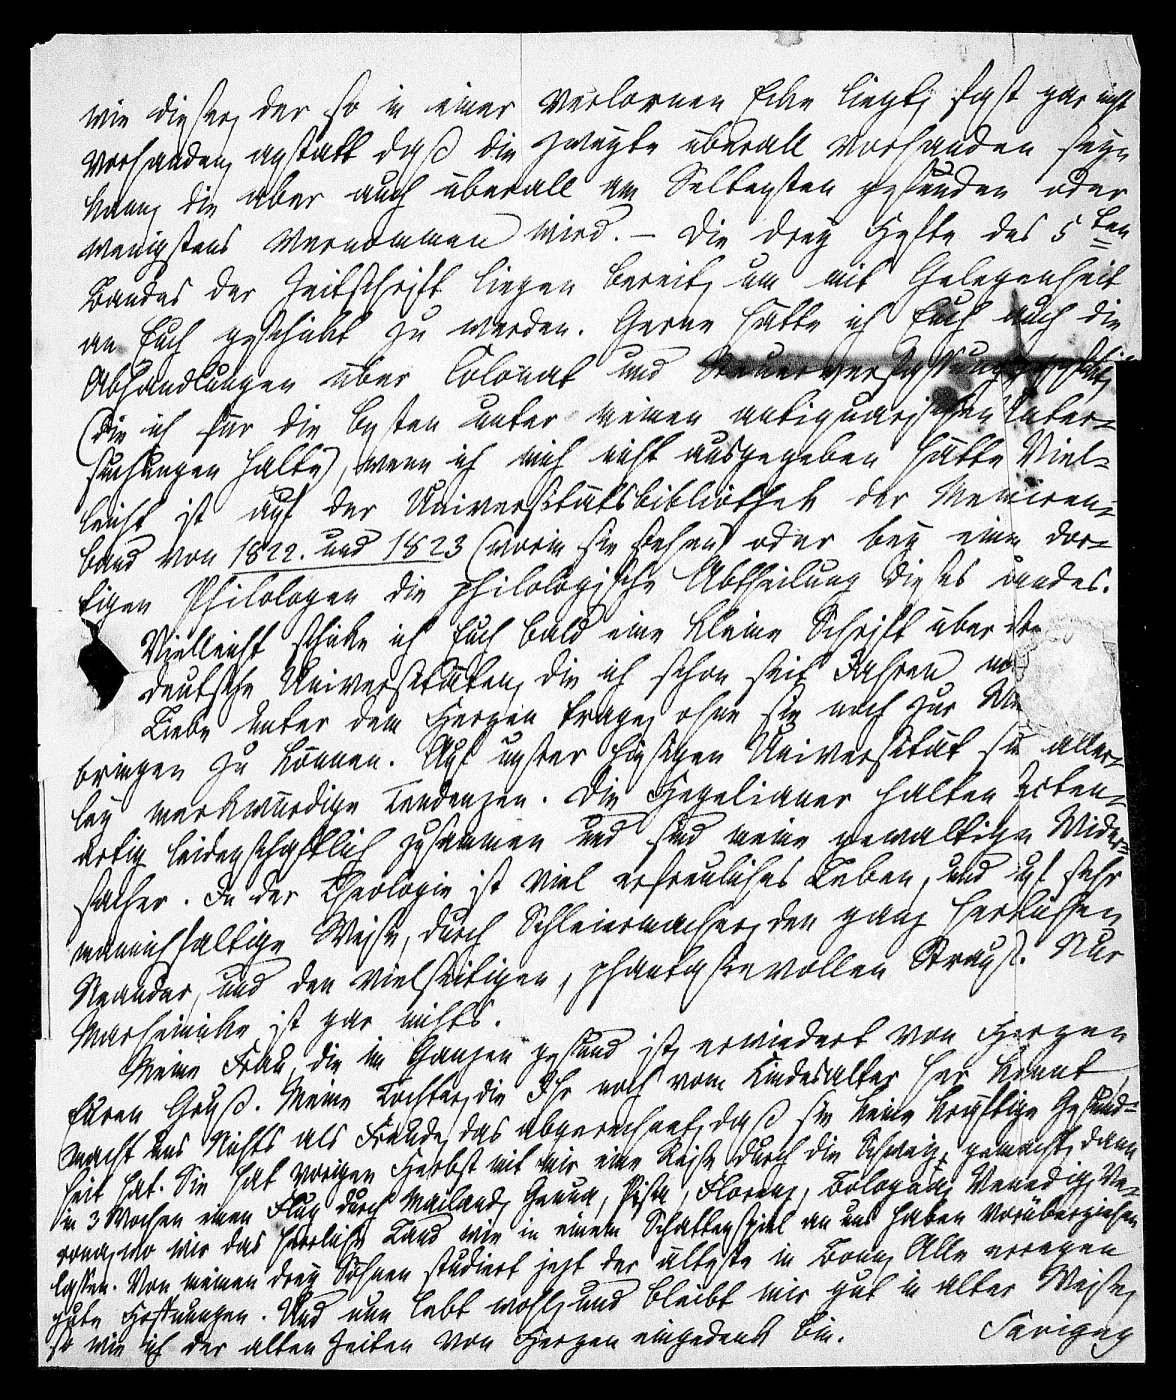 wie dieser, der so in einer verlornen Ecke liegt, fast gar nicht
vorhanden, anstatt daß die zweyte überall vorhanden seyn
kann, die aber auch überall am Seltensten gefunden oder
wenigstens vernommen wird. – Die drey Hefte des 5ten
Bandes der Zeitschrift liegen bereit, um mit Gelegenheit
an Euch geschickt zu werden. Gerne hätte ich Euch auch die
Abhandlungen über Colonat und Steuerverfassung geschickt,
(die ich für die besten unter meinen antiquarischen Unter-
suchungen halte), wenn ich mich nicht ausgegeben hätte Viel-
leicht ist auf der Universitätsbibliothek der Memoiren-
band von 1822. und 1823 (worin sie stehen) oder bey einem dor-
tigen Philologen die philologische Abtheilung dieses Bandes.
Vielleicht schicke ich Euch bald eine kleine Schrift über die
deutsche Universitäten, die ich schon seit Jahren
Liebe unter dem Herzen trage, ohne sie noch zur
bringen zu können. Auf unsrer hiesigen Universität aller-
ley merkwürdige Tendenzen. Die Hegelianer halten secten-
artig leidenschaftlich zusammen und sind meine gewaltigen Wider-
sacher. In der Theologie ist viel erfreuliches Leben, und auf sehr
mannichfaltige Weise, durch Schleiermacher, den ganz herrlichen
Neander, und den vielseitigen, phantasievollen Strauß. Nur
Marheinike ist gar nichts.
Meine Frau, die im Ganzen gesund ist, erwiedert von Herzen
Euren Gruß. Meine Tochter, die Ihr noch vom Kindesalter her kennt,
macht uns Nichts als Freude, das abgerechnet, daß sie keine kräftige Gesund-
heit hat. Sie hat vorigen Herbst mit mir eine Reise durch die Schweiz gemacht, dann
in 3 Wochen einen Flug durch Mailand, Genua, Pisa, Florenz, Bologna, Venedig, Ve-
rona, wo wir das herrliche Land wie in einem Schattenspiel an uns haben vorüberziehen
lassen. Von meinen drey Söhnen studiert jezt der älteste in Bonn, Alle erregen
gute Hoffnungen. Und nun lebt wohl, und bleibt mir gut in alter Weise,
so wie ich der alten Zeiten von Herzen eingedenk bin. Savigny